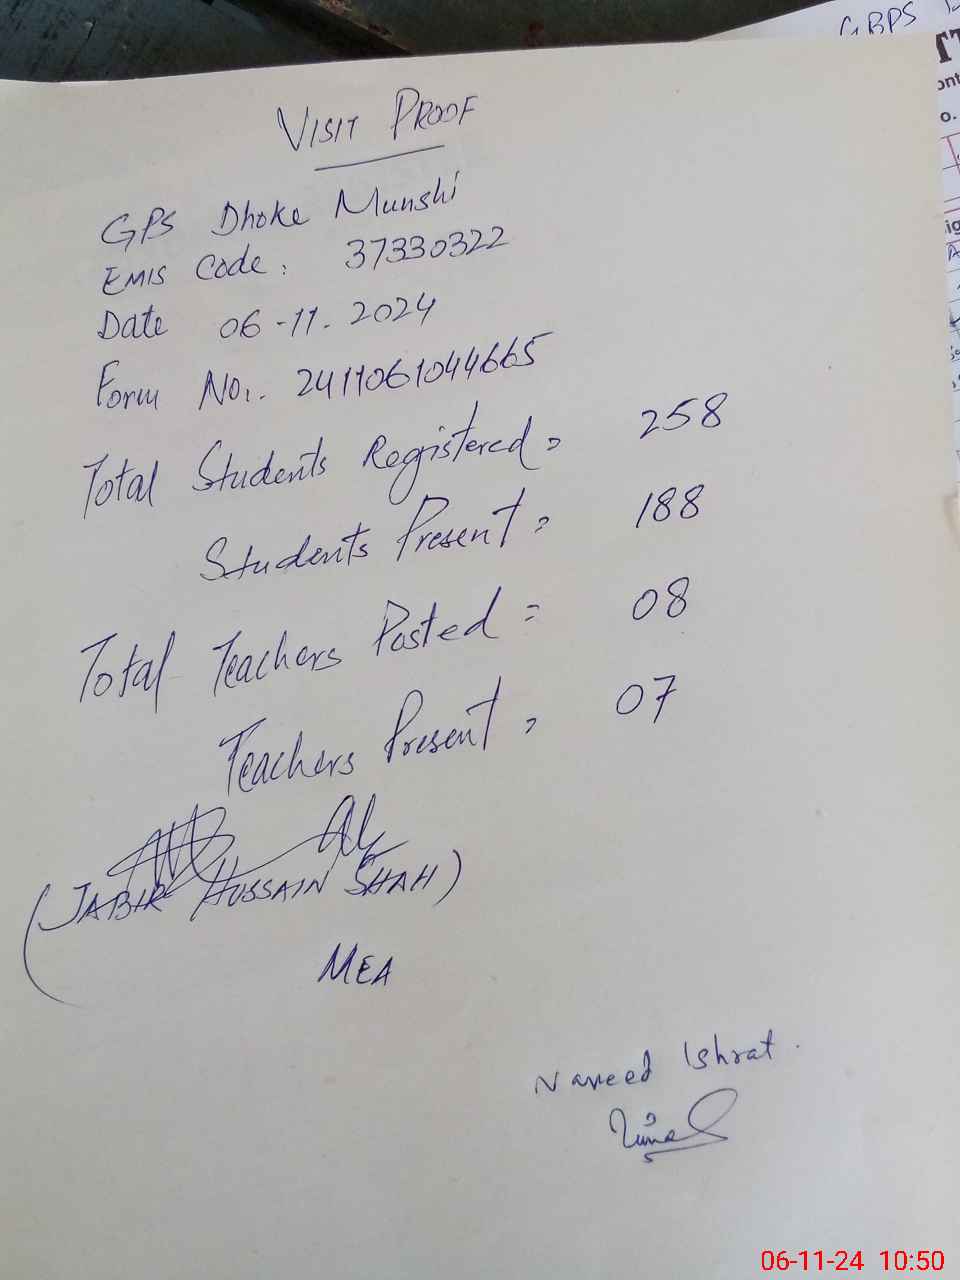 GBPS
VISIT PROOF
GPS Dhoke Munshi
EMIS Code: 37330322
Date 06-11-2024
Form No. 2411061044665
Total Students Registered = 258
Students Present = 188
Total Teachers Posted = 08
Teachers Present = 07
(JABIR HUSSAIN SHAH)
MEA
Naveed Ishrat.
06-11-24 10:50